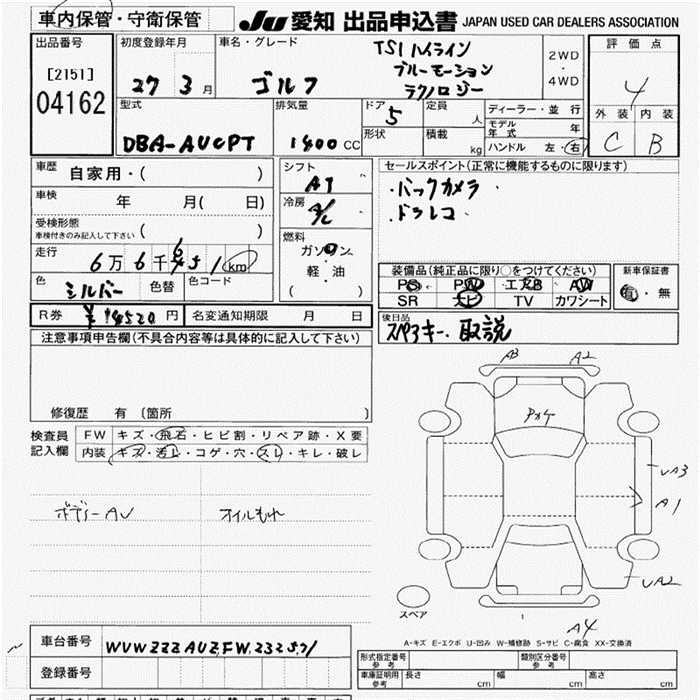 車内保管・守衛保管
JU 愛知 出品申込書 JAPAN USED CAR DEALERS ASSOCIATION
出品番号
[2151]
04162
初度登録年月
27 3月
車名・グレード
ゴルフ
TSIハイライン
ブルーモーション
テクノロジー
2WD
4WD
評価点
4
外装 内装
C B
型式
DBA-AUCPT
排気量
1400 CC
ドア 5
形状
定員 人
積載 kg
ディーラー・並行
モデル年式 年
ハンドル 左・右
車歴
自家用・( )
車検
年 月( 日)
受検形態
車検付きのみ記入して下さい ( )
走行
6万6千 51km
色 シルバー 色替 色コード
R券 ¥ 円
名変通知期限 月 日
シフト
AT
冷房
A/C
燃料
ガソリン
軽・油
( )
セールスポイント(正常に機能するものに限ります)
・バックカメラ
・ドラレコ
装備品(純正品に限り○をつけてください)
PS PW エアB AW
SR ナビ TV カワシート
新車保証書
有・無
後日品
スペアキー・取説
注意事項申告欄(不具合内容等は具体的に記入して下さい)
修復歴 有 〔箇所 〕
検査員記入欄
FW キズ・飛石・ヒビ割・リペア跡・X要
内装 キズ・汚レ・コゲ・穴・スレ・キレ・破レ
ボデーAU オイルもれ
A3 A2
UA3
A1
UA2
A4
スペア
A-キズ E-エクボ U-凹み W-補修跡 S-サビ C-腐食 XX-交換済
車台番号
登録番号
型式指定番号 参考
類別区分番号 参考
車庫証明用 参考
長さ cm 幅 cm 高さ cm